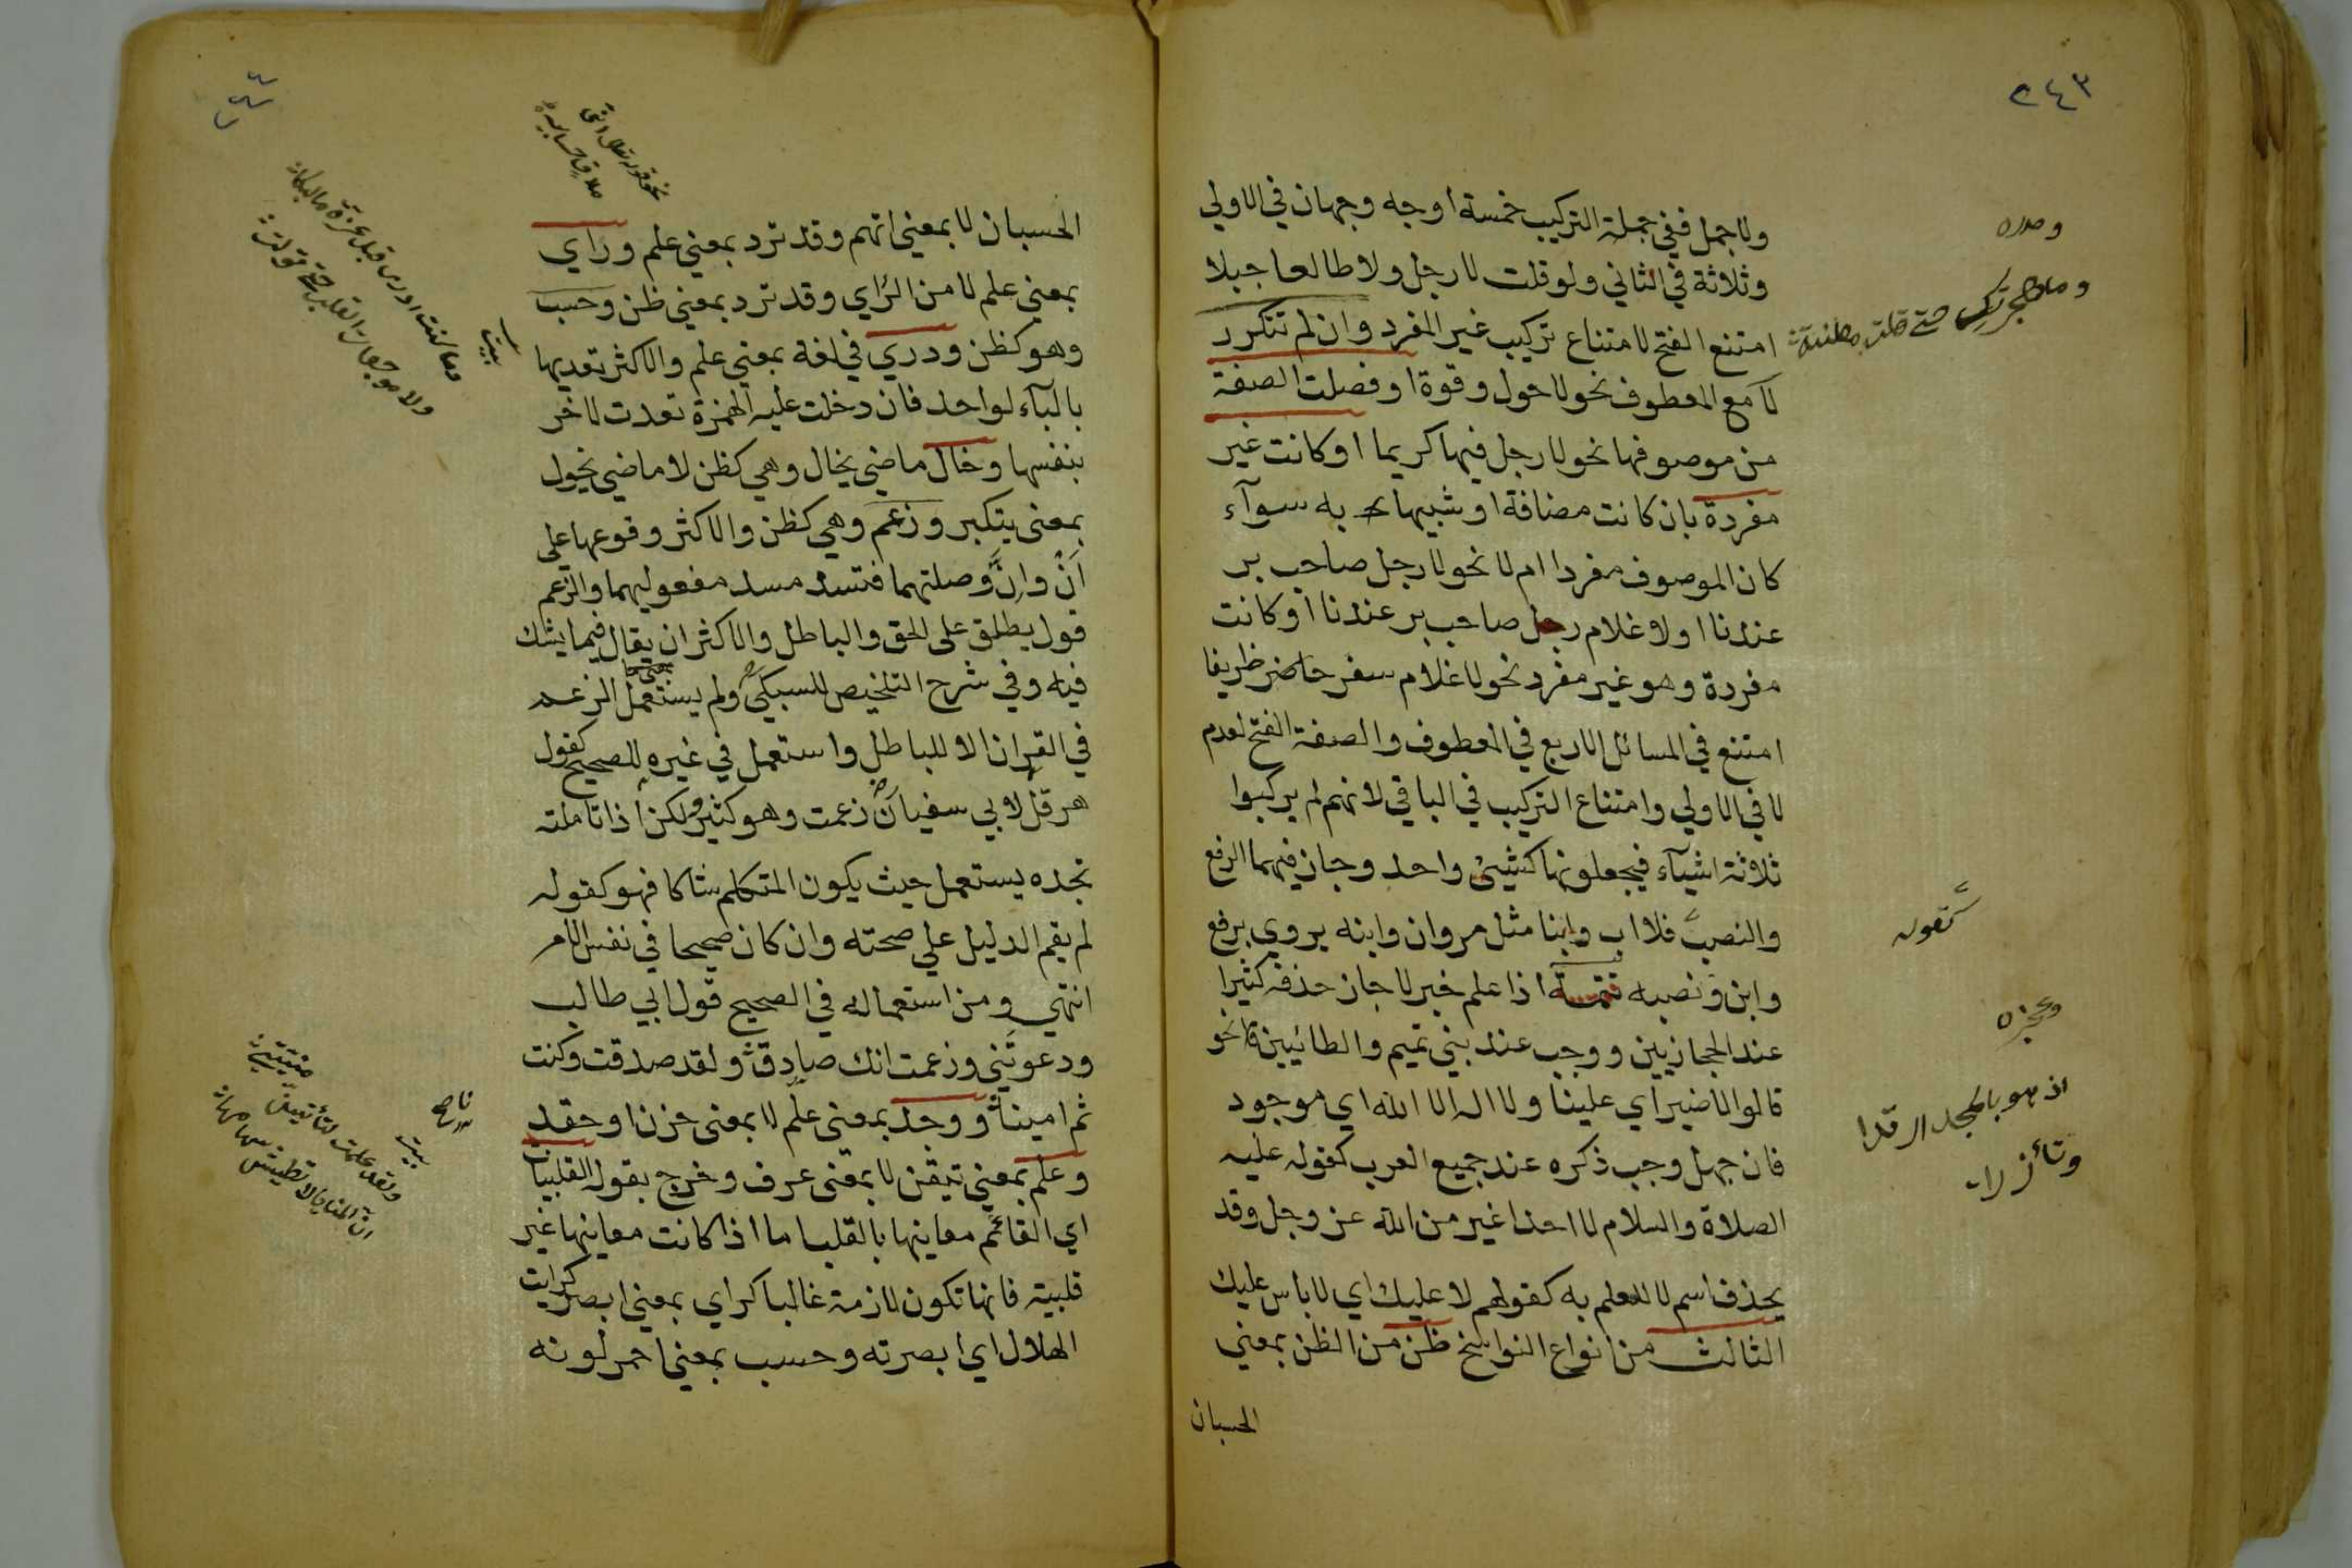 ٢٤٣
ولا جمل ففي جملة التركيب خمسة اوجه وجهان في الاولي
وثلاثة في الثاني ولو قلت لا رجل ولا طالعا جبلا
امتنع الفتح لامتناع تركيب غير المفرد وان لم تتكرر
لا مع المعطوف نحو لا حول وقوة او فصلت الصفة
من موصوفها نحو لا رجل فيها كريما او كانت غير
مفردة بان كانت مضافة او شبيها به سوآء
كان الموصوف مفردا ام لا نحو لا رجل صاحب بر
عندنا او لا غلام رجل صاحب بر عندنا او كانت
مفردة وهو غير مفرد نحو لا غلام سفر حاضر ظريفا
امتنع في المسائل الاربع في المعطوف والصفة الفتح لعدم
لا في الاولي وامتناع التركيب في الباقي لانهم لم يركبوا
ثلاثة اشيآء فيجعلونها كشيئ واحد وجاز فيهما الرفع
والنصب فلا اب وابنا مثل مروان وابنه يروي برفع
وابن ونصبه تتمة اذا علم خبر لا جاز حذفه كثيرا
عند الحجازيين ووجب عند بني تميم والطائيين نحو
قالوا لا ضير اي علينا ولا اله الا الله اي موجود
فان جهل وجب ذكره عند جميع العرب كقوله عليه
الصلاة والسلام لا احد اغير من الله عز وجل وقد
يحذف اسم لا للعلم به كقولهم لا عليك اي لا باس عليك
الثالث من انواع النواسخ ظن من الظن بمعني
الحسبان
وصدره
كقوله
وعجزه
اذ هو بالمجد ارتدا
وتأزرا
الحسبان لا بمعني اتهم وقد ترد بمعني علم وراي
بمعني علم لا من الرَّاي وقد ترد بمعني ظن وحسب
وهو كظن ودري في لغة بمعني علم والاكثر تعديها
بالبآء لواحد فان دخلت عليه الهمزة تعدت لاخر
بنفسها وخال ماضي يخال وهي كظن لا ماضي يخول
بمعني يتكبر وزعم وهي كظن والاكثر وقوعها علي
اَنْ وانَّ وصلتهما فتسد مسد مفعوليهما والزعم
قول يطلق علي الحق والباطل والاكثر ان يقال فيما يشك
فيه وفي شرح التلخيص للسبكي ولم يستعمل الزعم
في القران الا للباطل واستعمل في غيره للصحيح كقول
هرقل لابي سفيان زعمت وهو كثير ولكن اذا تاملته
تجده يستعمل حيث يكون المتكلم شاكا فهو كقوله
لم يقم الدليل علي صحته وان كان صحيحا في نفس الامر
انتهي ومن استعماله في الصحيح قول ابي طالب
ودعوتَني وزعمت انك صادق ولقد صدقت وكنت
ثم امينا ووجد بمعني علم لا بمعني حزن او حقد
وعلم بمعني تيقن لا بمعني عرف وخرج بقوله القلبيات
اي القائم معاينها بالقلب ما اذا كانت معاينها غير
قلبية فانها تكون لازمة غالبا كراي بمعني ابصر كرايت
الهلال اي ابصرته وحسب بمعني احمر لونه
بيت
وما كنت ادري قبل عزة ما البكا
بيت
ولقد علمت لتأتين منيتي
ان المنايا لا تطيش سهامها